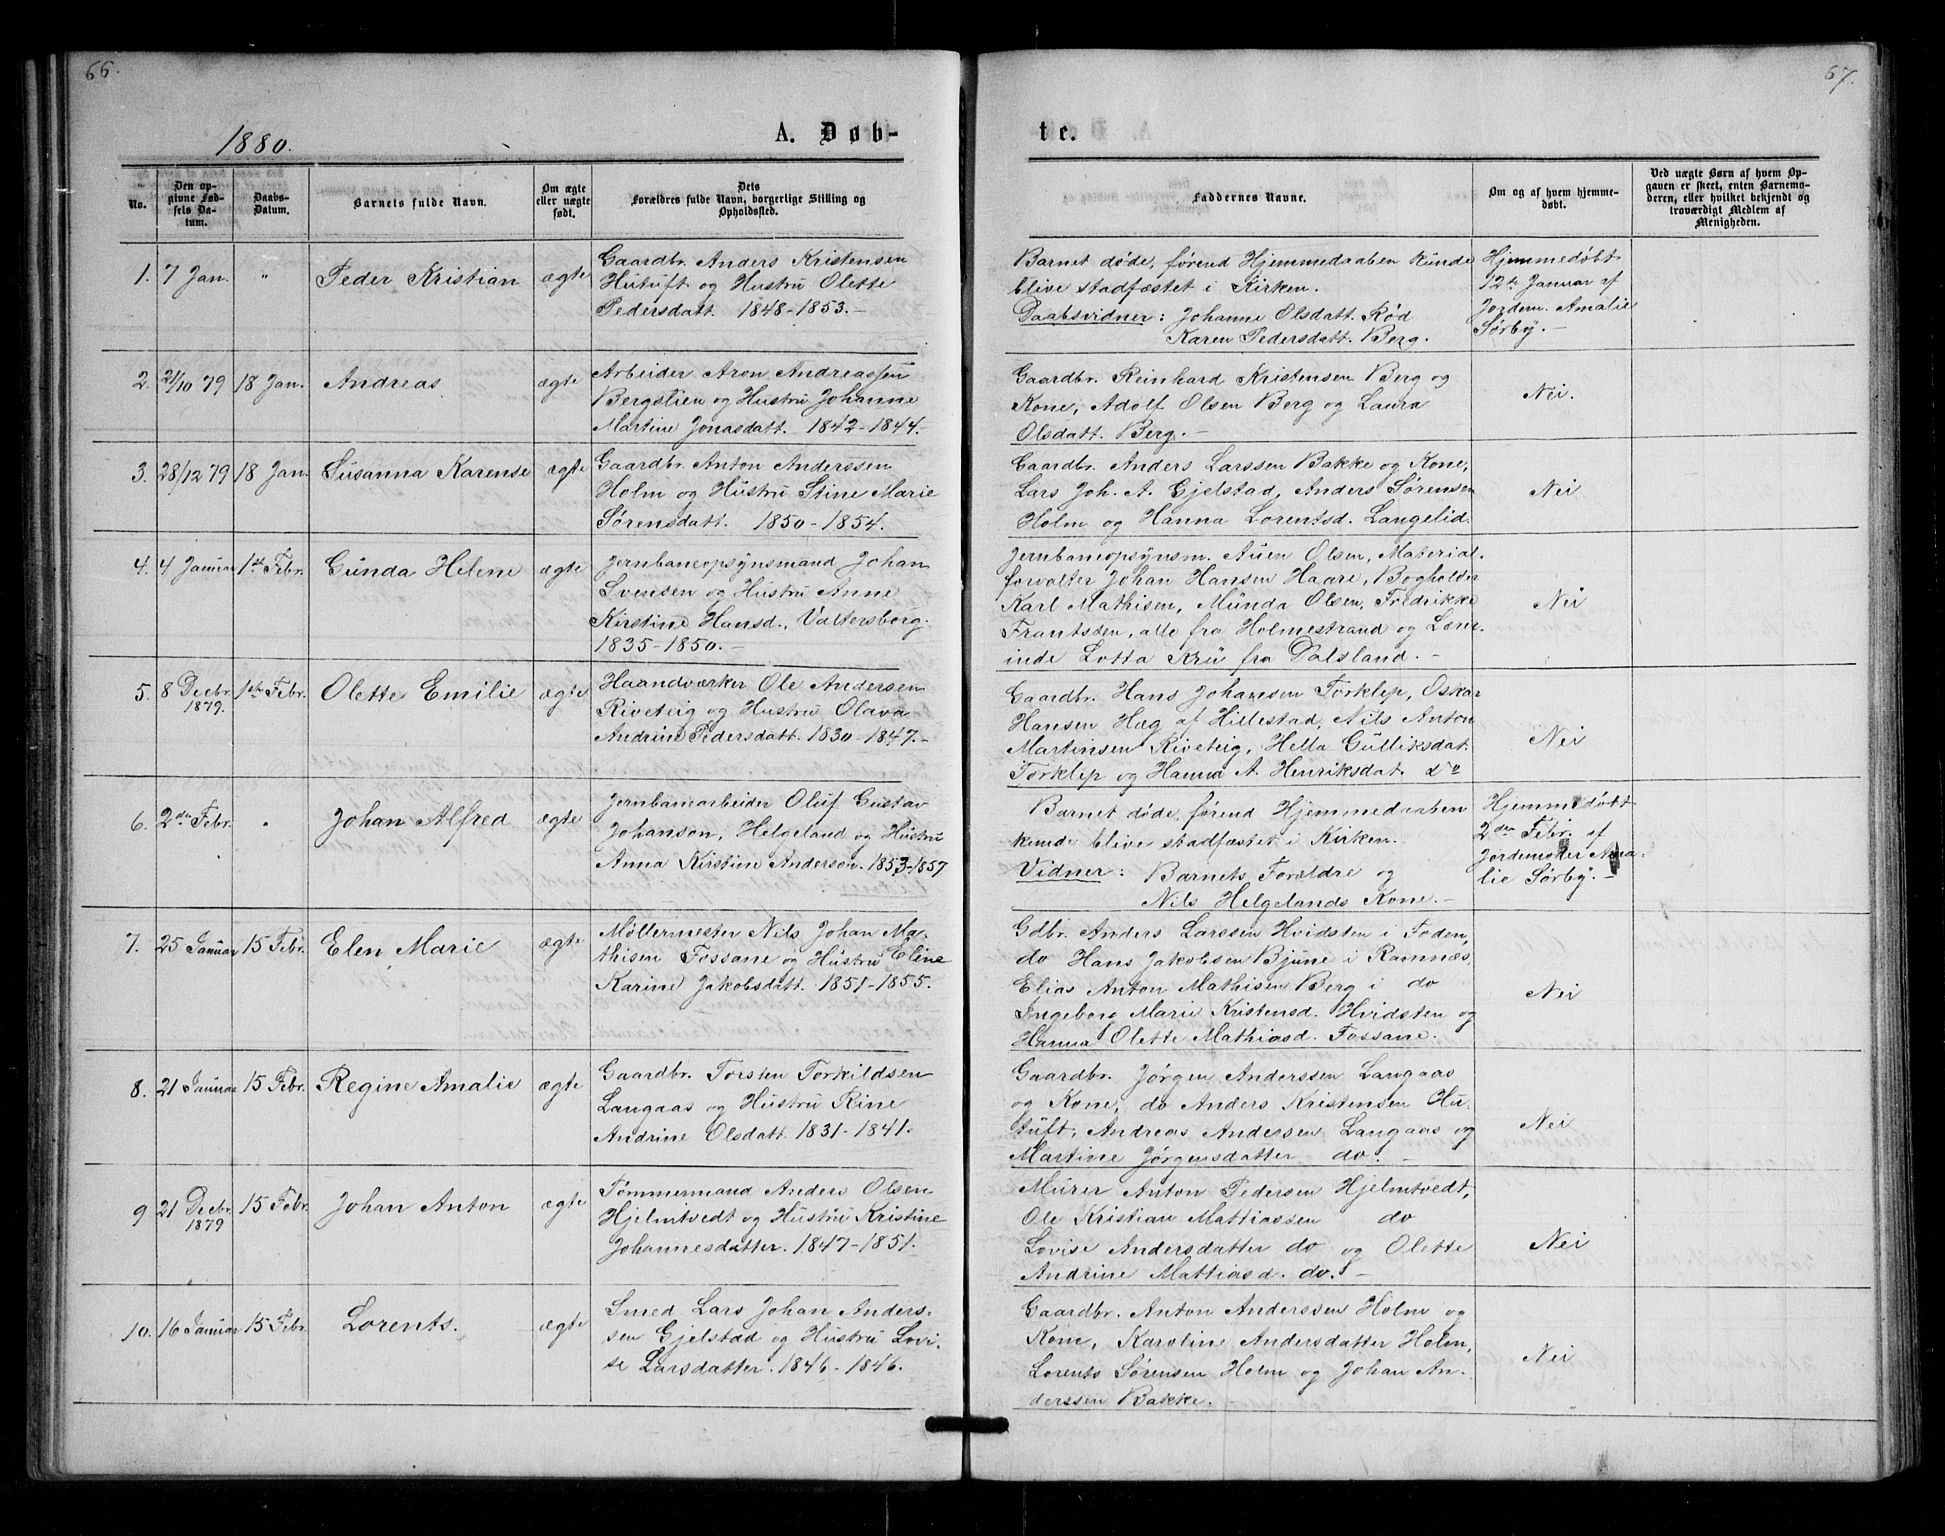 66.
67.
1880.
A. Døb-
te.
No.
Den op-
givne Fød-
sels Da-
tum.
Daabs-
Datum.
Barnets fulde Navn.
Om ægte
eller uægte
født.
Dets
Forældres fulde Navn, borgerlige Stilling og
Opholdssted.
Faddernes Navne.
Om og af hvem hjemme-
døbt.
Ved uægte Børn af hvem Op-
gaven er skeet, enten Barnemo-
deren, eller hvilket bekjendt og
troværdigt Medlem af
Menigheden.
1. 7 Jan. " Peder Kristian ægte
Gaardbr. Anders Kristensen
Hutuft og Hustru Olette
Pedersdatt. 1848-1853.-
Barnet døde, førend Hjemmedaaben kunde
blive stadfæstet i Kirken.
Daabsvidner: Johanne Olsdatt. Rød
Karen Pedersdatt. Berg.
Hjemmedøbt
12te Januar af
Jordem. Amalie
Sørby.-
2. 21/10 79 18 Jan. Andreas ægte
Arbeider Aron Andreassen
Bergstien og Hustru Johanne
Martine Jonasdatt. 1842-1844.
Gaardbr. Reinhard Kristensen Berg og
Kone, Adolf Olsen Berg og Laura
Olsdatt. Berg.-
Nei.
3. 28/12 79 18 Jan. Susanna Karense ægte
Gaardbr. Anton Anderssen
Holm og Hustru Stine Marie
Sørensdatt. 1850-1854.
Gaardbr. Anders Larssen Bakke og Kone,
Lars Joh. A. Gjelstad, Anders Sørensen
Holm og Hanna Lorentsd. Langelid.
Nei
4. 4 Januar 1ste Febr. Gunda Helene ægte
Jernbaneopsynsmand Johan
Svensen og Hustru Anne
Kirstine Hansd., Valtersborg.
1835-1850.-
Jernbaneopsynsm. Auen Olsen, Material-
forvalter Johan Hansen Haare, Bogholder
Karl Mathisen, Munda Olsen, Fredrikke
Frantssen, alle fra Holmestrand og Lærer-
inde Lotta Kru fra Dalsland.-
Nei
5. 8 Decbr. 1879. 1ste Febr. Olette Emilie ægte
Haandværker Ole Andersen
Riveteig og Hustru Olava
Andrine Pedersdatt. 1830-1847.-
Gaardbr. Hans Johansen Torklep, Oskar
Hansen Hæg af Hillestad, Nils Anton
Martinsen Riveteig, Hella Gulliksdat.
Torklep og Hanna A. Henriksdat. do
Nei
6. 2den Febr. " Johan Alfred ægte
Jernbanearbeider Oluf Gustav
Johanson, Helgeland og Hustru
Anna Kirstine Anderson. 1853-1857
Barnet døde, førend Hjemmedaaben
kunde blive stadfæstet i Kirken.
Vidner: Barnets Forældre og
Nils Helgelands Kone.-
Hjemmedøbt
2den Febr. af
Jordemoder Ama-
lie Sørby.-
7. 25 Januar 15 Febr. Elen Marie ægte
Møllermester Nils Johan Ma-
thisen Fossane og Hustru Eline
Karine Jakobsdatt. 1851-1855.
Gdbr. Anders Larssen Hvidsten i Foden,
do Hans Jakobsen Bjune i Ramnæs,
Elias Anton Mathisen Berg i do
Ingeborg Marie Kristensd. Hvidsten og
Hanna Olette Mathiasd. Fossane.
Nei
8. 21 Januar 15 Febr. Regine Amalie ægte
Gaardbr. Torsten Torkildsen
Langaas og Hustru Rine
Andrine Olsdatt. 1831-1841.
Gaardbr. Jørgen Anderssen Langaas
og Kone, do Anders Kristensen Hu-
tuft, Andreas Andersen Langaas og
Martine Jørgensdatter do.-
Nei
9 21 Decbr. 1879 15 Febr. Johan Anton ægte
Tømmermand Anders Olsen
Hjelmtvedt og Hustru Kristine
Johannesdatter. 1847-1851.
Murer Anton Pedersen Hjelmtvedt,
Ole Kristian Mattiassen do
Lovise Andersdatter do og Olette
Andrine Mattiasd. do.-
Nei
10. 16 Januar 15 Febr. Lorents. ægte
Smed Lars Johan Anders-
sen Gjelstad og Hustru Lovi-
se Larsdatter. 1846-1846.
Gaardbr. Anton Anderssen Holm og
Kone, Karoline Andersdatter Holm,
Lorents Sørensen Holm og Johan An-
derssen Bakke.
Nei